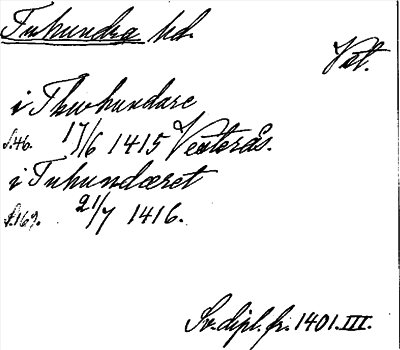 Tuhundra hd.
Vst.
i Thwhundare
s. 46. 17/6 1415 Vesterås.
i Tuhundæret
s. 169. 21/7 1416.
Sv. dipl. fr. 1401. III.